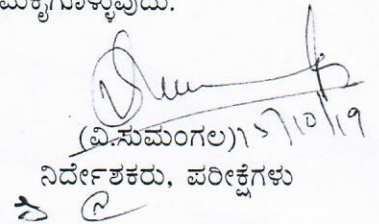 ಮಕೈಗೊಳ್ಳುವುದು.
(ವಿ.ಸುಮಂಗಲ) 15/10/19
ನಿರ್ದೇಶಕರು, ಪರೀಕ್ಷೆಗಳು